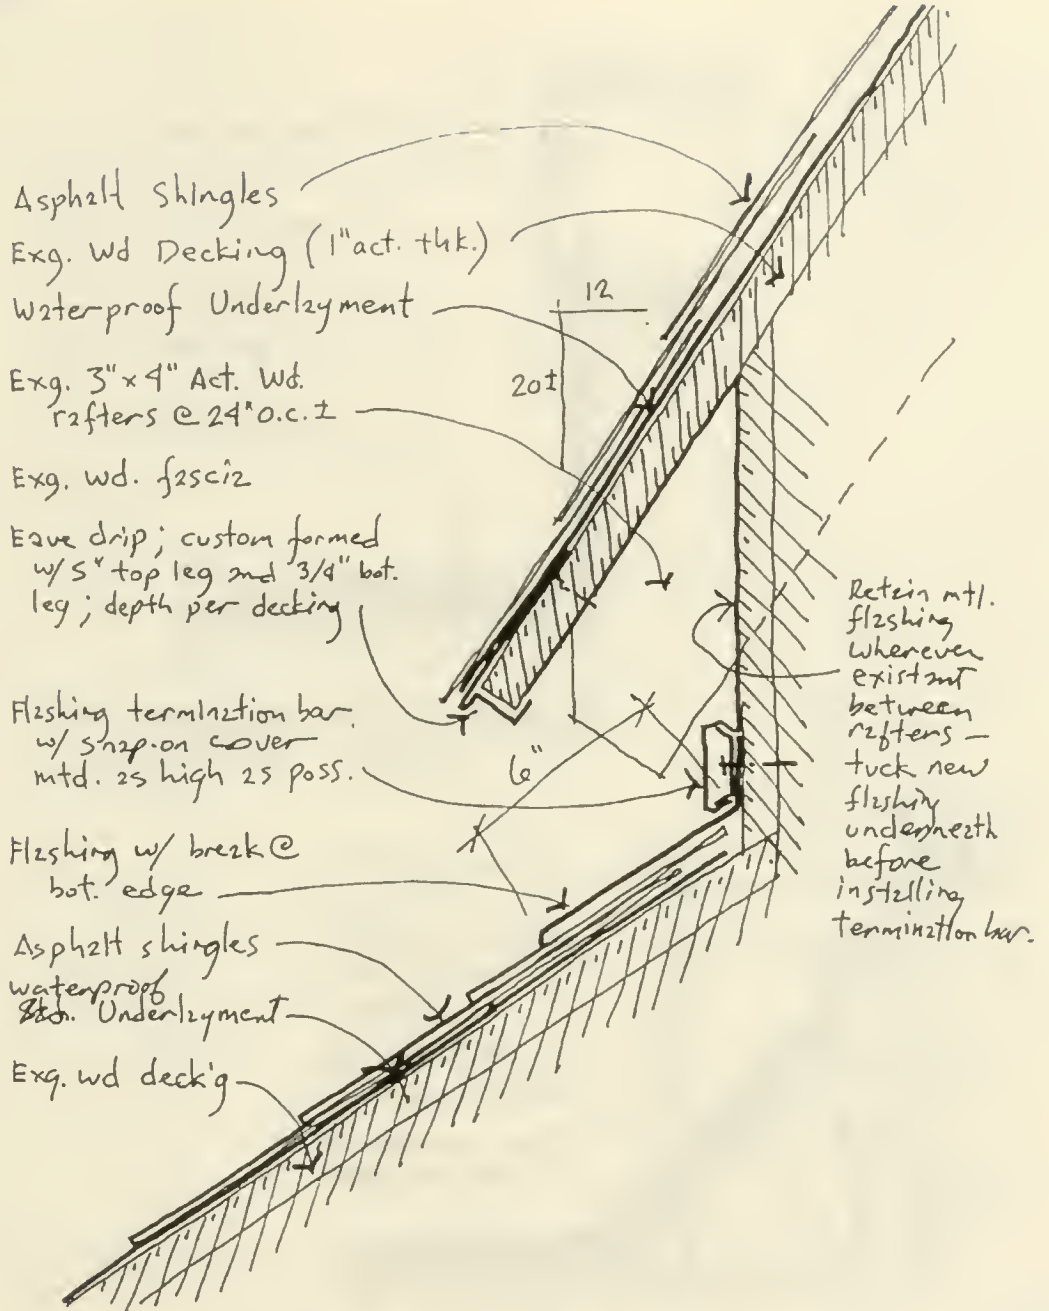 Asphalt Shingles
Exg. Wd Decking (1" act. thk.)
Waterproof Underlayment
Exg. 3"x4" Act. Wd.
rafters @ 24" o.c. ±
Exg. wd. fascia
Eave drip; custom formed
w/ 5" top leg and 3/4" bot.
leg; depth per decking
Flashing termination bar
w/ snap-on cover
mtd. as high as poss.
Flashing w/ break @
bot. edge
Asphalt shingles
waterproof
Underlayment
Exg. wd deck'g
12
20±
6"
Retain mtl.
flashing
wherever
existant
between
rafters –
tuck new
flashing
underneath
before
installing
termination bar.